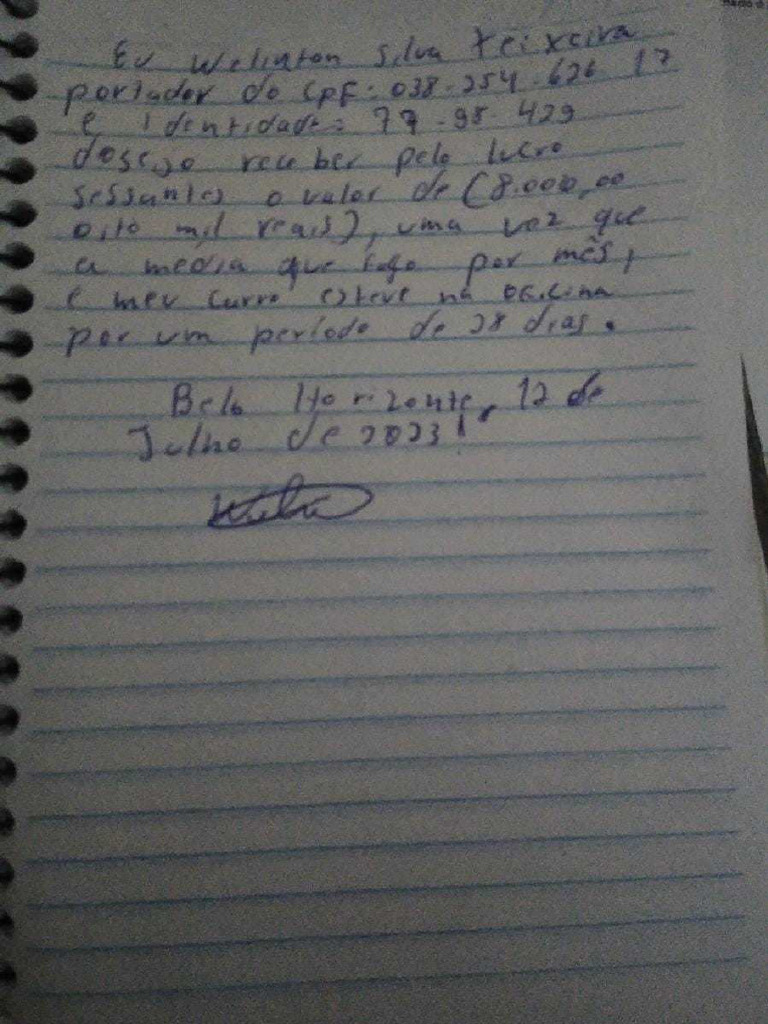 Eu Welinton Silva Teixeira
portador do CPF: 038.254.626 17
e Identidade: 77.98.429
desejo receber pelo lucro
sessantes o valor de (8.000,00
oito mil reais), uma vez que
a media que faço por mês,
e meu carro esteve na oficina
por um período de 28 dias.
Belo Horizonte, 12 de
Julho de 2023